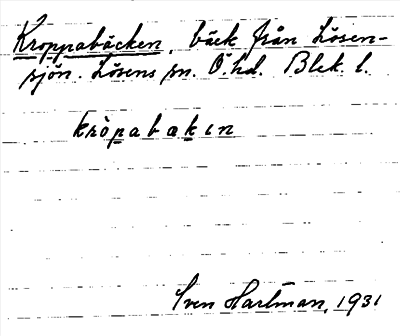 Kroppabäcken, bäck från Lösen-
sjön. Lösens sn. Ö. hd. Blek. l.
kròpabakin
Sven Hartman, 1931